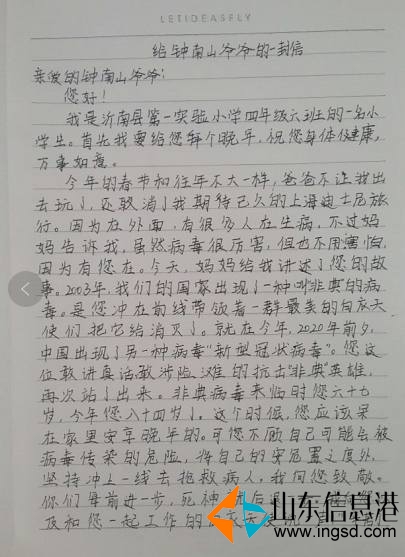 LETIDEASFLY
给钟南山爷爷的一封信
亲爱的钟南山爷爷：
您好！
我是沂南县第一实验小学四年级六班的一名小
学生。首先我要给您拜个晚年，祝您身体健康，
万事如意。
今年的春节和往年不大一样，爸爸不让我出
去玩了，还取消了我期待已久的上海迪士尼旅
行。因为在外面，有很多人在生病，不过妈
妈告诉我，虽然病毒很厉害，但也不用害怕，
因为有您在。今天，妈妈给我讲述了您的故
事。2003年，我们的国家出现了一种叫非典的病
毒。是您冲在前线带领着一群最美的白衣天
使们把它给消灭了。就在今年，2020年前夕，
中国出现了另一种病毒“新型冠状病毒”。您这
位敢讲真话敢涉险滩的抗击“非典”英雄，
再次站了出来。非典病毒来临时您六十七
岁，今年您八十四岁了。这个时候，您应该呆
在家里安享晚年的。可您不顾自己可能会被
病毒传染的危险，将自己的安危置之度外，
坚持冲上一线去抢救病人，我向您致敬。
你们每前进一步，死神就后退
及和您一起工作的白衣天使
山东信息港
www.ingsd.com